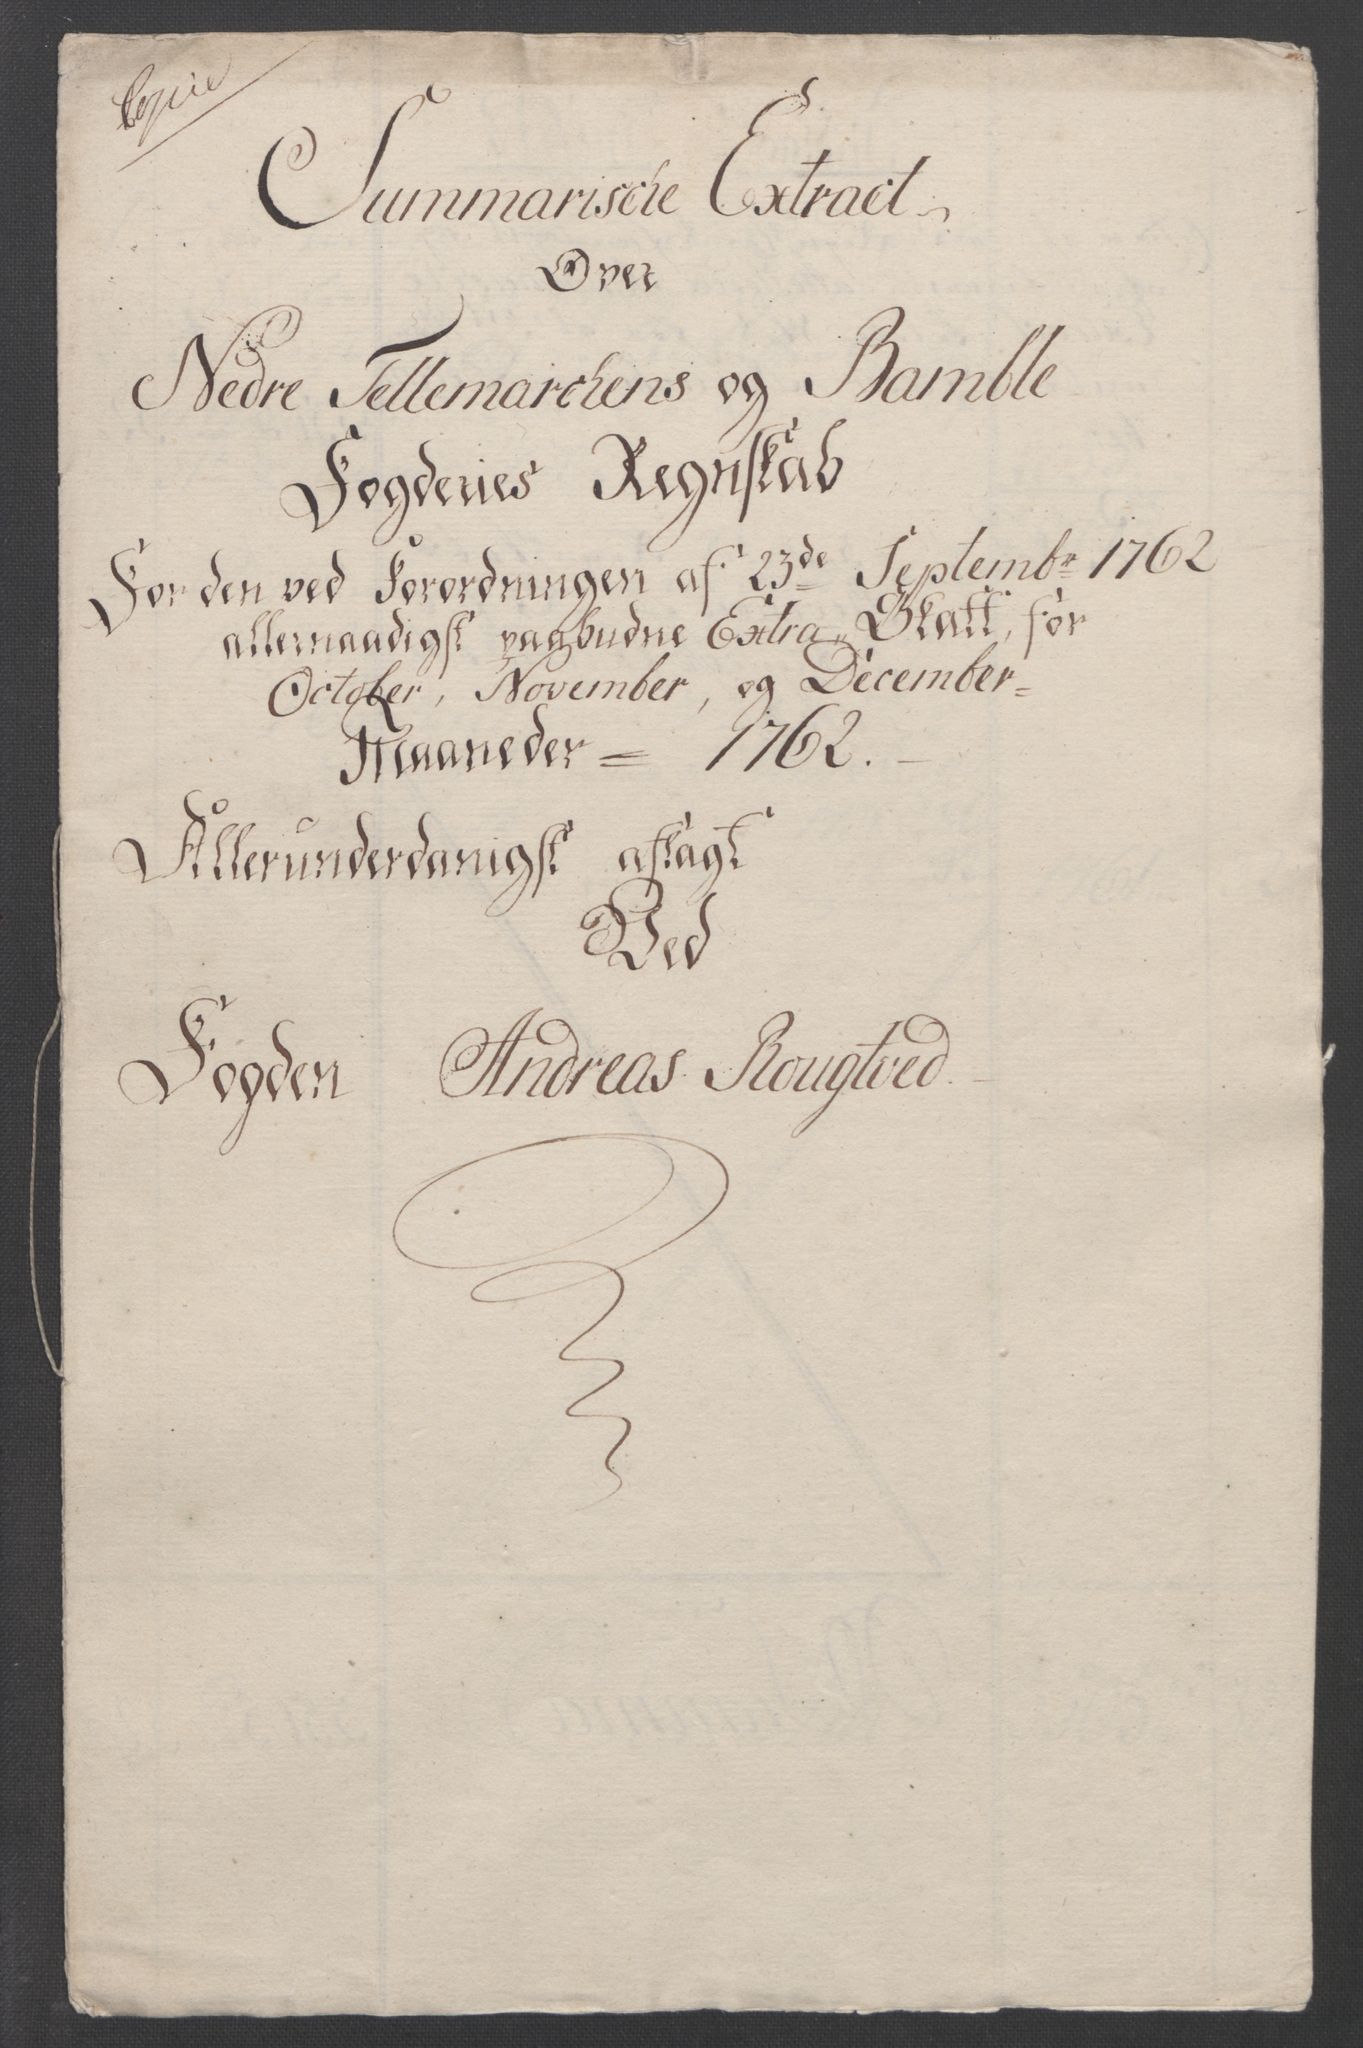 Copie
Summarische Extract
Over
Nedre Tellemarchens og Bamble
Fogderies Regnskab
For den ved Forordningen af 23de Septembr 1762
allernaadigst paabudne Extra Skatt, for
October, November, og December=
Maaneder = 1762.
Allerunderdanigst aflagt
Ved
Fogden Andreas Rougtved